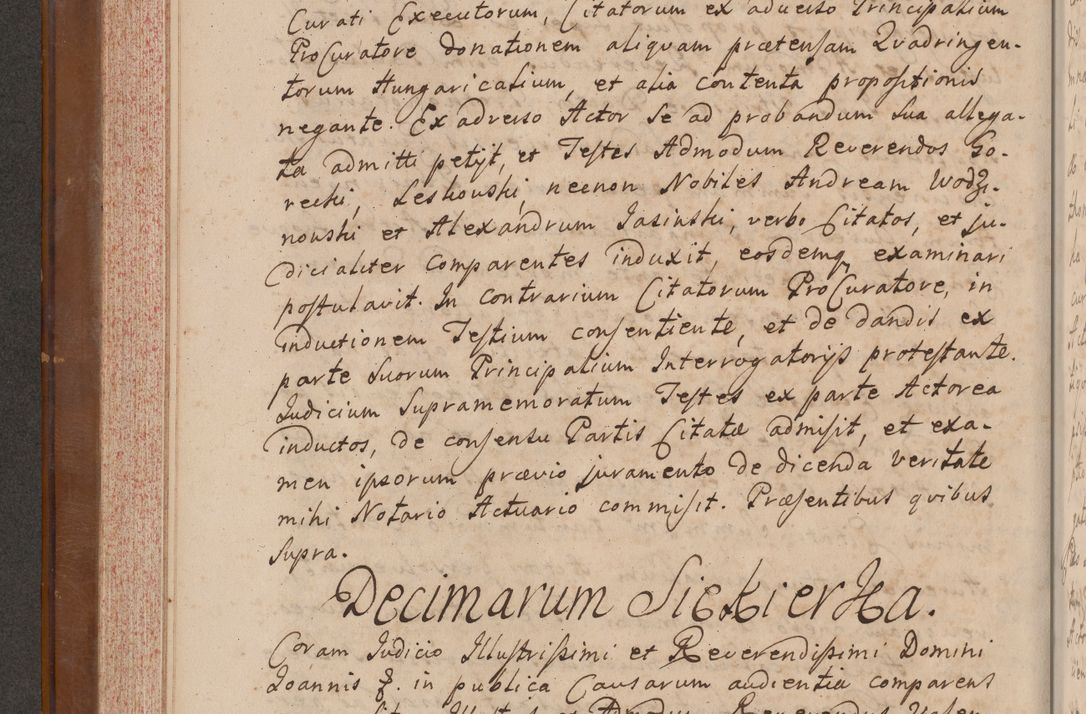 Curati Executorum, Citatorum ex adverso Principalium
Procuratore donationem aliquam prætensam Quadringen-
torum Hungaricalium, et alia contenta propositionis
negante. Ex adverso Actor se ad probandum sua allega-
ta admitti petijt, et Testes Admodum Reverendos Go-
recki, Leskouski, necnon Nobiles Andream Wodzi-
nouski et Alexandrum Jasinski, verbo Citatos, et ju-
dicialiter comparentes induxit, eosdemq, examinari
postulavit. In contrarium Citatorum ProCuratore, in
inductionem Testium consentiente, et de dandis ex
parte suorum Principalium Interrogatorijs protestante.
Judicium supramemoratum Testes ex parte Actorea
inductos, de consensu Partis Citatæ admisit, et exa-
men ipsorum prævio juramento de dicenda veritate
mihi Notario Actuario commisit. Præsentibus quibus
supra.
Decimarum Siekierka.
Coram Judicio Illustrissimi et Reverendissimi Domini
Joannis &. in publica Causarum audientia comparens